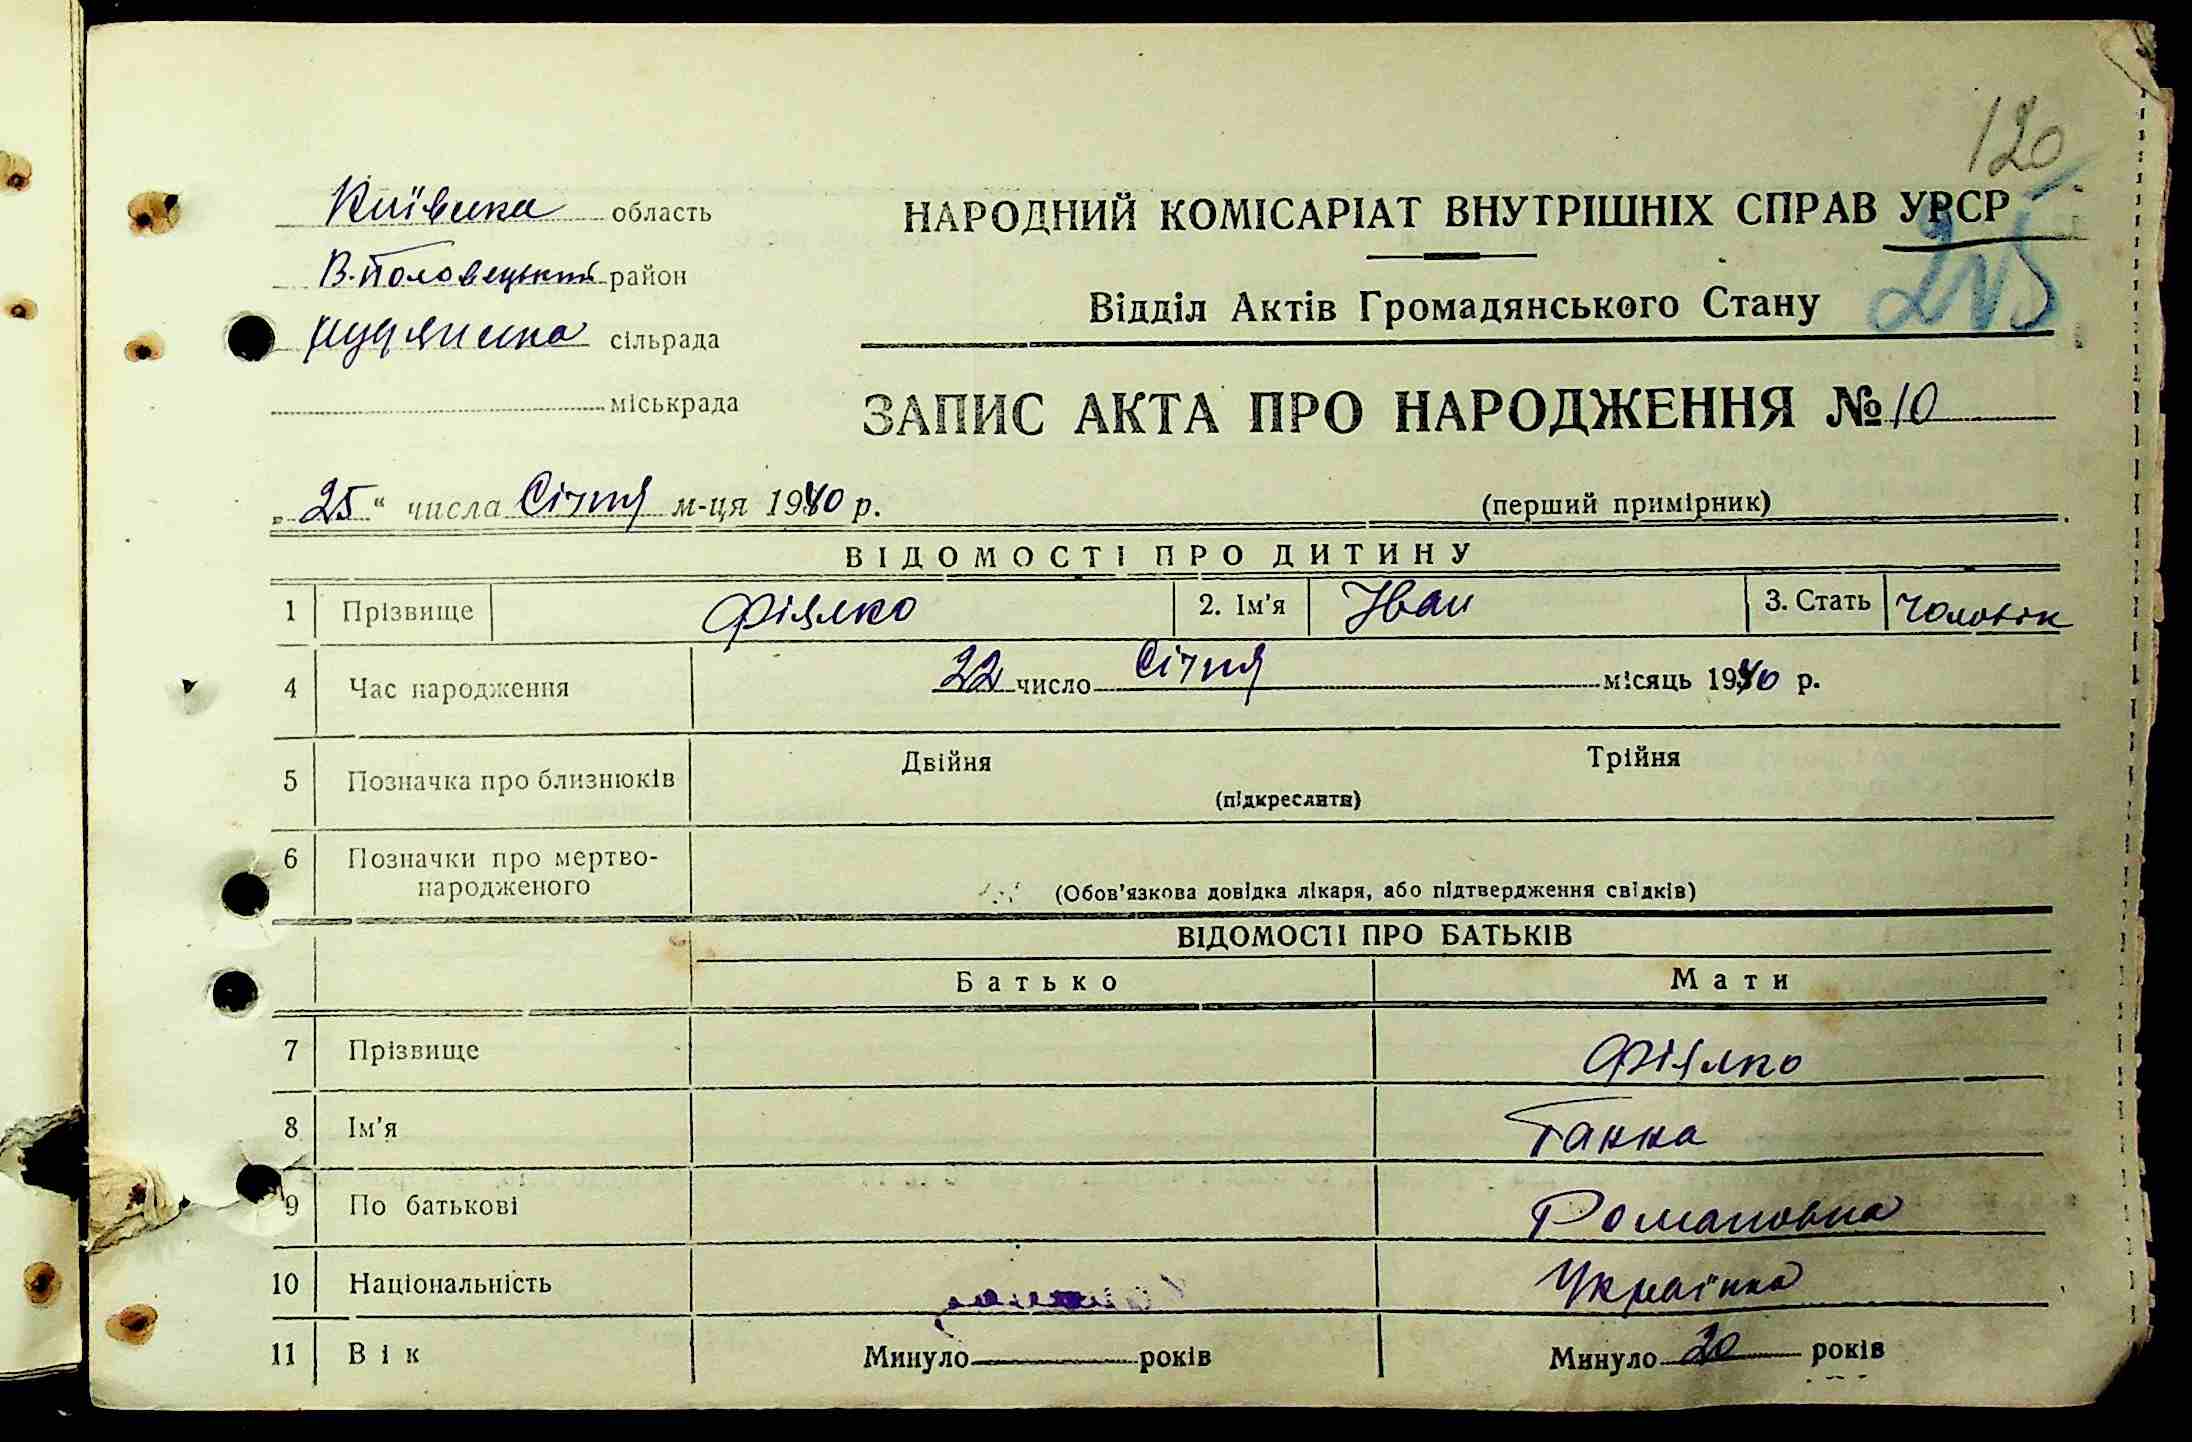 120
Київська область
НАРОДНИЙ КОМІСАРІАТ ВНУТРІШНІХ СПРАВ УРСР
В.Половецький район
Відділ Актів Громадянського Стану
215
сільрада
міськрада
ЗАПИС АКТА ПРО НАРОДЖЕННЯ № 10
„ 25 “ числа Січня м-ця 1940 р.
(перший примірник)
ВІДОМОСТІ ПРО ДИТИНУ
1 Прізвище Фіялко 2. Ім'я Іван 3. Стать чоловік
4 Час народження 22 число Січня місяць 1940 р.
5 Позначка про близнюків Двійня Трійня
(підкреслити)
6 Позначки про мертво-
народженого (Обов'язкова довідка лікаря, або підтвердження свідків)
ВІДОМОСТІ ПРО БАТЬКІВ
Батько Мати
7 Прізвище Фіялко
8 Ім'я Ганна
9 По батькові Романовна
10 Національність Українка
11 Вік Минуло років Минуло 20 років